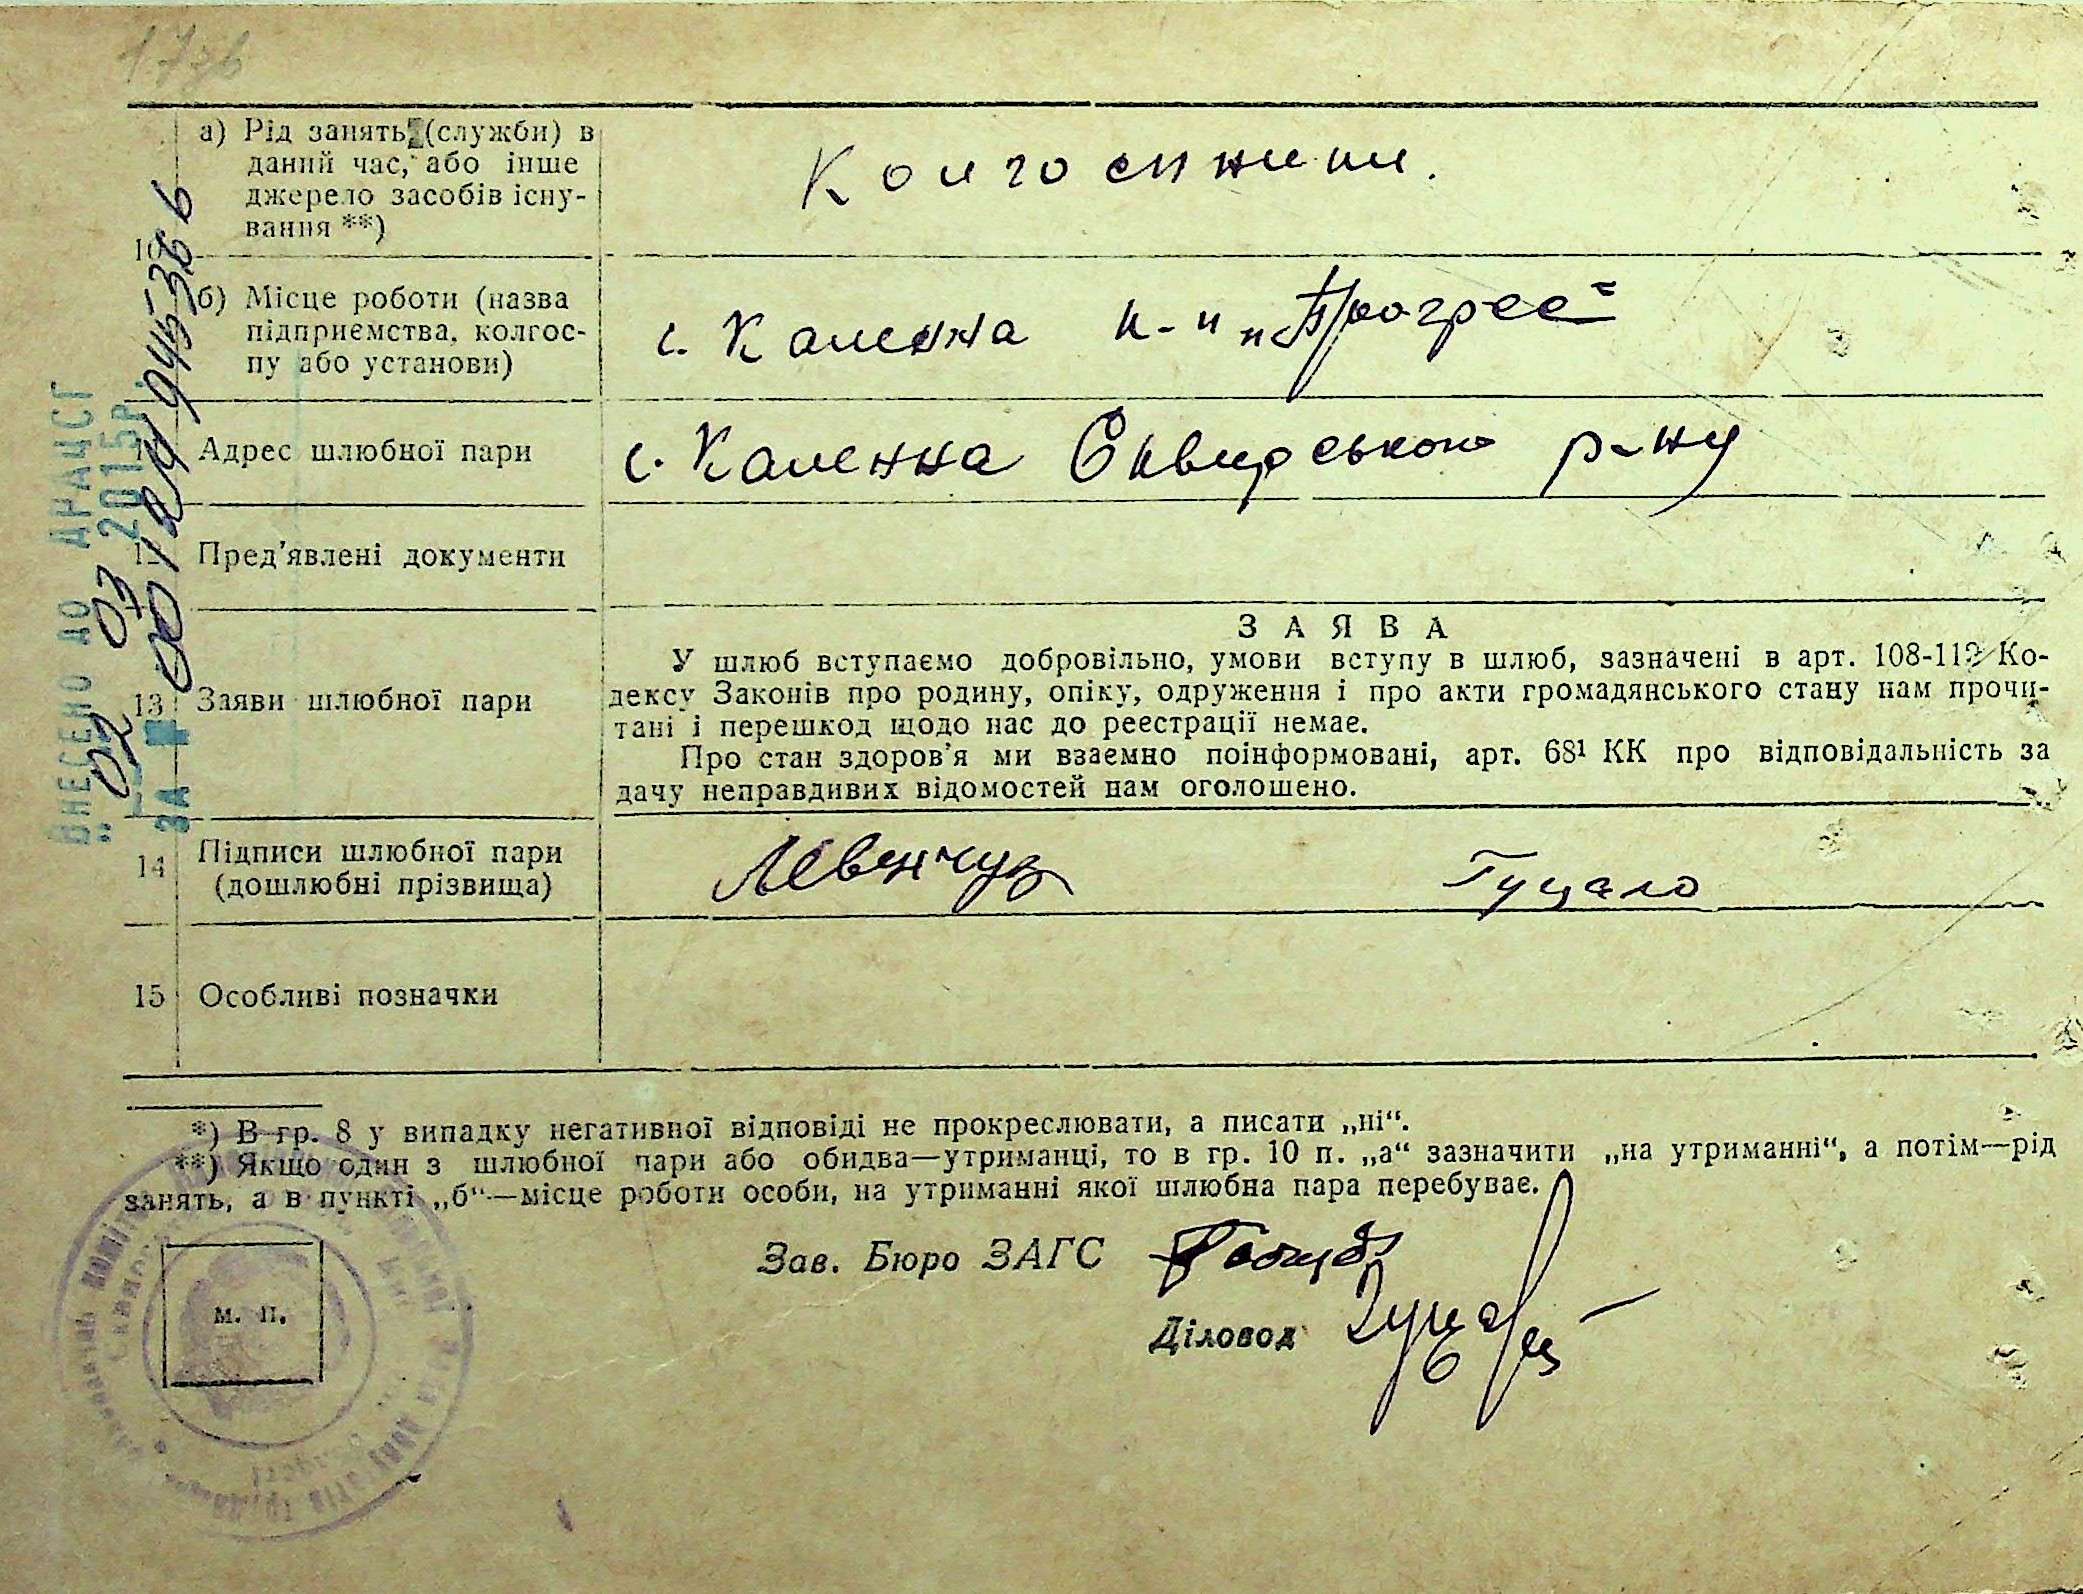 17зв
а) Рід занять (служби) в
даний час, або інше
джерело засобів існу-
вання **)
Колгоспники.
10
б) Місце роботи (назва
підприємства, колгос-
пу або установи)
с. Каленна к-п „Прогрес"
11 Адрес шлюбної пари
с. Каленна Сквирського р-ну
12 Пред'явлені документи
13 Заяви шлюбної пари
ЗАЯВА
У шлюб вступаємо добровільно, умови вступу в шлюб, зазначені в арт. 108-112 Ко-
дексу Законів про родину, опіку, одруження і про акти громадянського стану нам прочи-
тані і перешкод щодо нас до реестрації немає.
Про стан здоров'я ми взаємно поінформовані, арт. 68¹ КК про відповідальність за
дачу неправдивих відомостей нам оголошено.
14 Підписи шлюбної пари
(дошлюбні прізвища)
Левенчук Гуцало
15 Особливі позначки
*) В гр. 8 у випадку негативної відповіді не прокреслювати, а писати „ні“.
**) Якщо один з шлюбної пари або обидва—утриманці, то в гр. 10 п. „а“ зазначити „на утриманні“, а потім—рід
занять, а в пункті „б“—місце роботи особи, на утриманні якої шлюбна пара перебуває.
Зав. Бюро ЗАГС
Діловод
М. П.
Внесено до ДРАЦСГ
„02 07 2015р.
ЗА № 00124945366